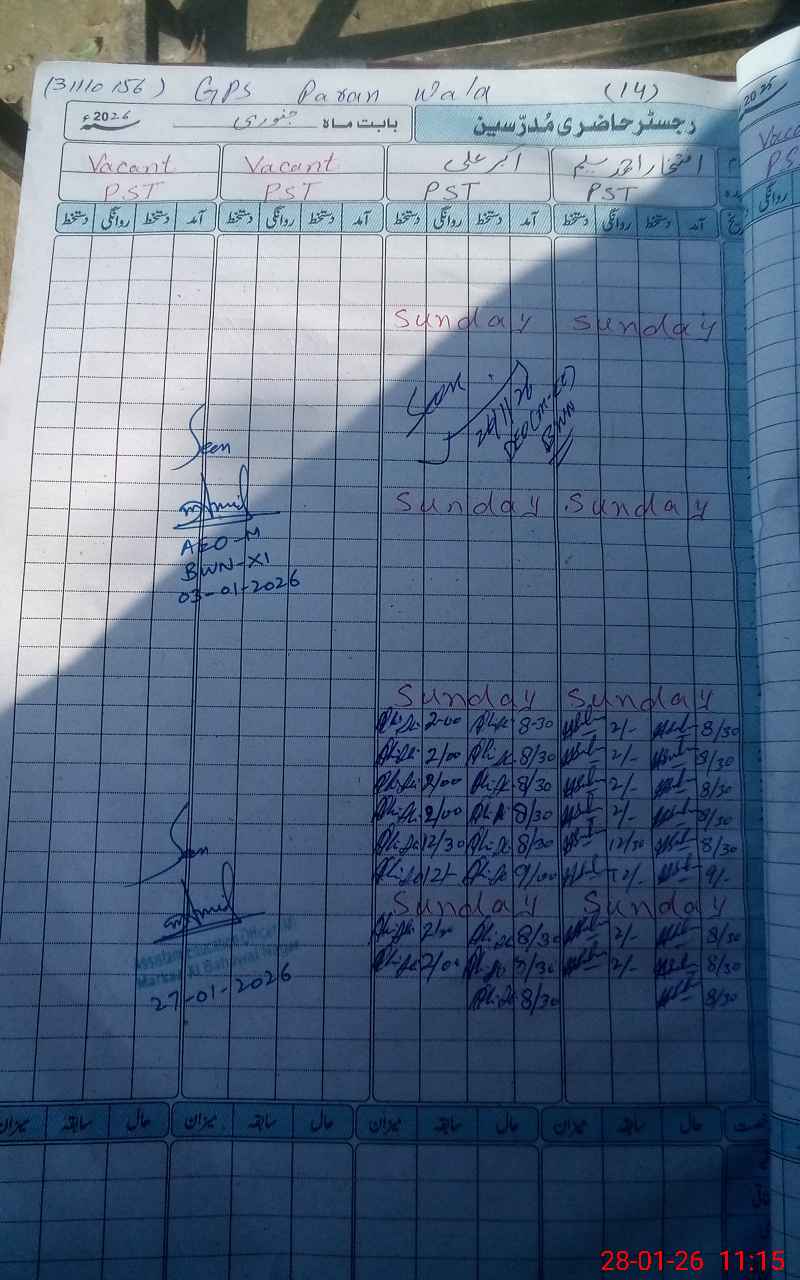 (31110156) GPS Paran wala (14)
رجسٹر حاضری مُدرّسین بابت ماہ جنوری 2026ء
افتخار احمد سلیم اکبر علی Vacant Vacant
PST PST PST PST
آمد دستخط روانگی دستخط آمد دستخط روانگی دستخط آمد دستخط روانگی دستخط آمد دستخط روانگی دستخط
Sunday Sunday
Seen
DEO (M-EE)
BWN
Seen
Sunday Sunday
AEO-M
BWN-XI
03-01-2026
Sunday Sunday
2-00 8-30 2/- 8/30
2/00 8/30 2/- 8/30
2/00 8/30 2/- 8/30
2/00 8/30 2/- 8/30
12/30 8/30 12/30 8/30
12/- 9/00 12/- 9/-
Seen
Sunday Sunday
2/00 8/30 2/- 8/30
2/00 8/30 2/- 8/30
8/30 8/30
27-01-2026
حال سابقہ میزان حال سابقہ میزان حال سابقہ میزان حال سابقہ میزان
28-01-26 11:15